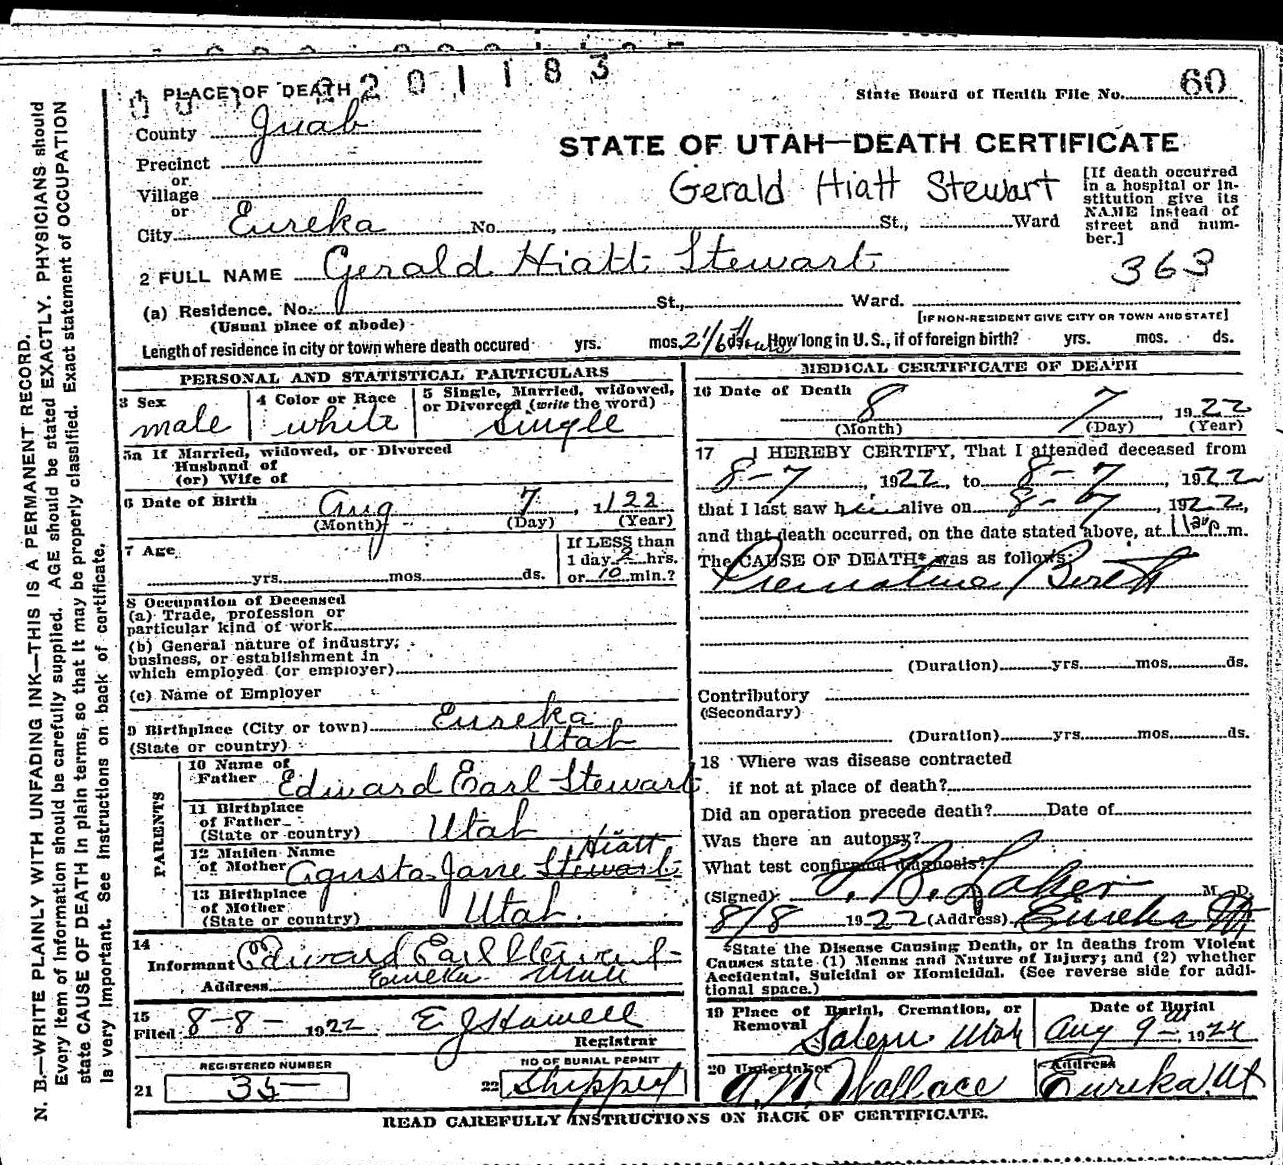 2201183
1 PLACE OF DEATH
State Board of Health File No. 60
County Juab
STATE OF UTAH—DEATH CERTIFICATE
Precinct
or
Village
Gerald Hiatt Stewart
[If death occurred in a hospital or institution give its NAME instead of street and number.]
or
City Eureka No. , St., Ward
2 FULL NAME Gerald Hiatt Stewart
363
(a) Residence. No. St., Ward.
(Usual place of abode)
[IF NON-RESIDENT GIVE CITY OR TOWN AND STATE]
Length of residence in city or town where death occured yrs. mos. 2 1/6 Hours ds. How long in U. S., if of foreign birth? yrs. mos. ds.
PERSONAL AND STATISTICAL PARTICULARS
3 Sex male
4 Color or Race white
5 Single, Married, widowed, or Divorced (write the word) Single
5a If Married, widowed, or Divorced
Husband of
(or) Wife of
6 Date of Birth Aug 7, 1922
(Month) (Day) (Year)
7 Age yrs. mos. ds.
If LESS than
1 day 2 hrs.
or 10 min.?
8 Occupation of Deceased
(a) Trade, profession or
particular kind of work
(b) General nature of industry,
business, or establishment in
which employed (or employer)
(c) Name of Employer
9 Birthplace (City or town) Eureka
(State or country) Utah
PARENTS
10 Name of
Father Edward Earl Stewart
11 Birthplace
of Father
(State or country) Utah
12 Maiden Name Hiatt
of Mother Agusta Jane Stewart
13 Birthplace
of Mother
(State or country) Utah
14
Informant Edward Earl Stewart
Address Eureka Utah
15
Filed 8-8- 1922 E J Howell
Registrar
REGISTERED NUMBER
21 35
NO OF BURIAL PERMIT
22 Shipped
MEDICAL CERTIFICATE OF DEATH
16 Date of Death 8 7, 1922
(Month) (Day) (Year)
17 I HEREBY CERTIFY, That I attended deceased from
8-7, 1922, to 8-7, 1922
that I last saw him alive on 8-7, 1922,
and that death occurred, on the date stated above, at 11 m.
The CAUSE OF DEATH* was as follows:
Premature Birth
(Duration) yrs. mos. ds.
Contributory
(Secondary)
(Duration) yrs. mos. ds.
18 Where was disease contracted
if not at place of death?
Did an operation precede death? Date of
Was there an autopsy?
What test confirmed diagnosis?
(Signed) M. D.
8/8 1922 (Address) Eureka
*State the Disease Causing Death, or in deaths from Violent
Causes state (1) Means and Nature of Injury; and (2) whether
Accidental, Suicidal or Homicidal. (See reverse side for addi-
tional space.)
19 Place of Burial, Cremation, or
Removal Salem Utah
Date of Burial
Aug 9, 1922
20 Undertaker
A. N. Wallace
Address
Eureka Ut
READ CAREFULLY INSTRUCTIONS ON BACK OF CERTIFICATE.
N. B.—WRITE PLAINLY WITH UNFADING INK—THIS IS A PERMANENT RECORD.
Every item of information should be carefully supplied. AGE should be stated EXACTLY. PHYSICIANS should
state CAUSE OF DEATH in plain terms, so that it may be properly classified. Exact statement of OCCUPATION
is very important. See instructions on back of certificate.